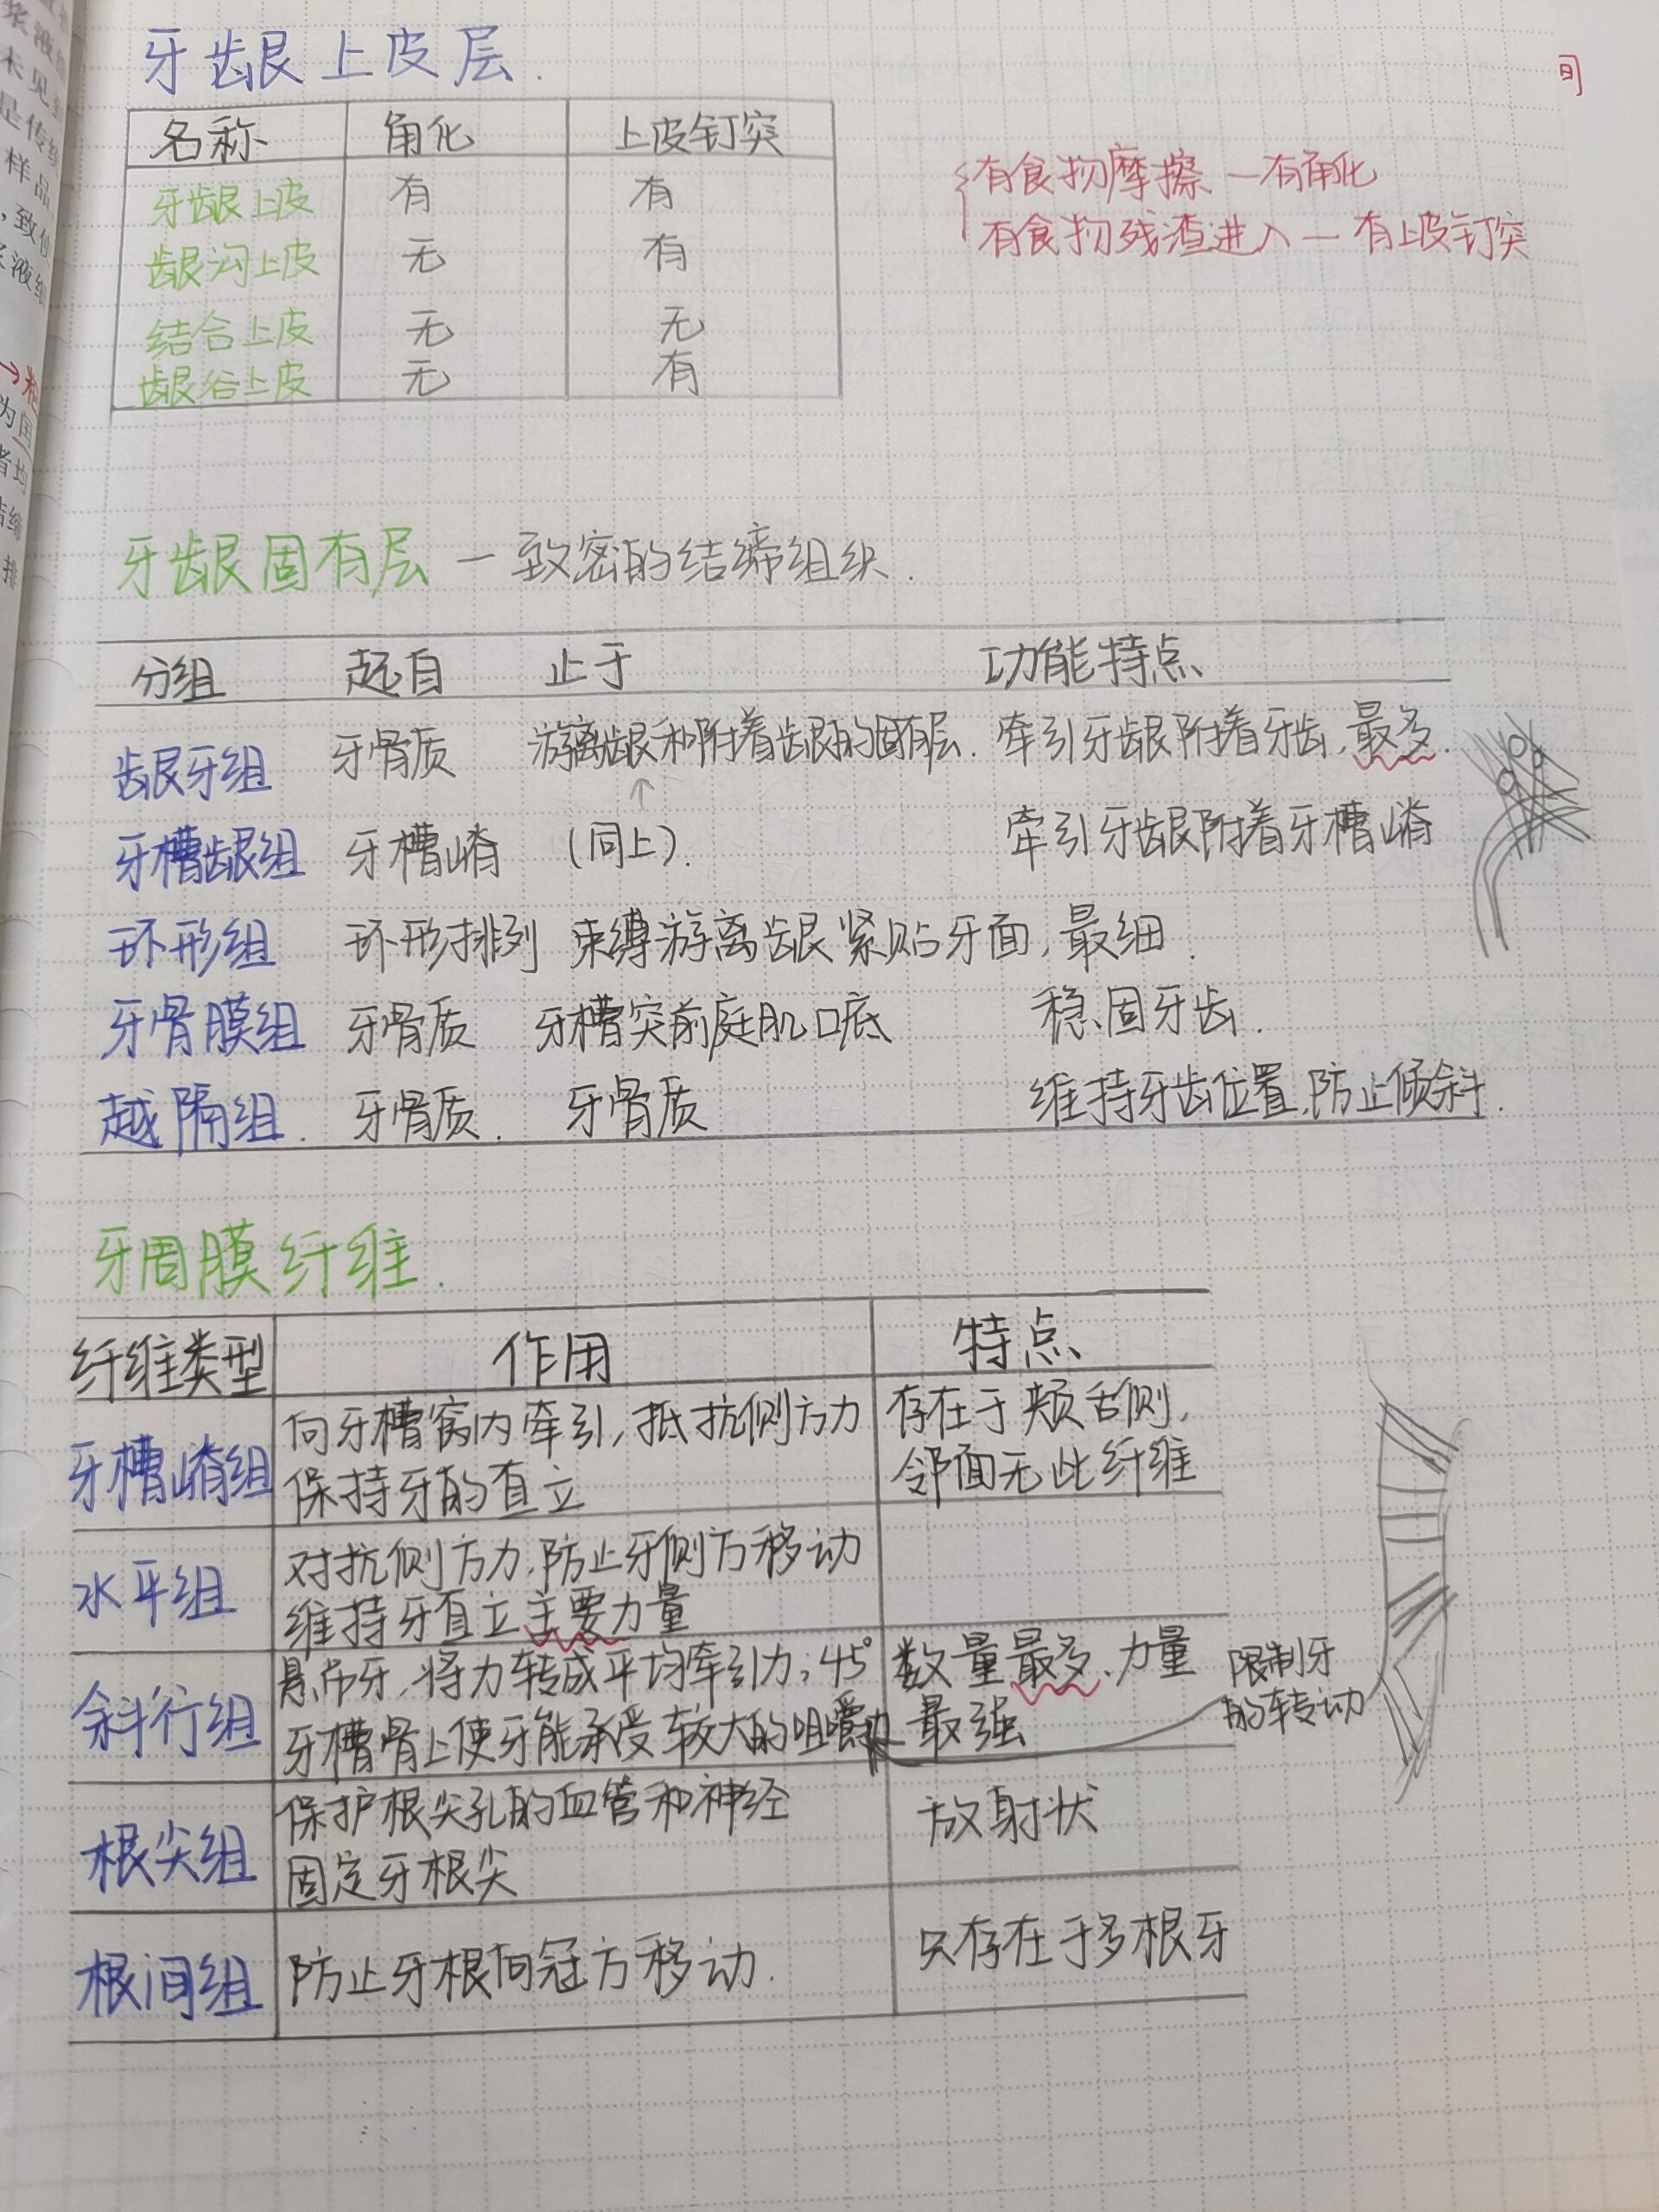 牙龈上皮层.
名称 角化 上皮钉突
牙龈上皮 有 有
龈沟上皮 无 有
结合上皮 无 无
龈谷上皮 无 有
有食物摩擦—有角化
有食物残渣进入—有上皮钉突
牙龈固有层—致密的结缔组织.
分组 起自 止于 功能特点
龈牙组 牙骨质 游离龈和附着龈的固有层. 牵引牙龈附着牙齿,最多.
↑
牙槽龈组 牙槽嵴 (同上). 牵引牙龈附着牙槽嵴
环形组 环形排列 束缚游离龈紧贴牙面,最细.
牙骨膜组 牙骨质 牙槽突前庭肌口底 稳固牙齿.
越隔组. 牙骨质. 牙骨质 维持牙齿位置,防止倾斜.
牙周膜纤维.
纤维类型 作用 特点
牙槽嵴组 向牙槽窝内牵引,抵抗侧方力 存在于颊舌侧,
保持牙的直立 邻面无此纤维
水平组 对抗侧方力,防止牙侧方移动
维持牙直立主要力量
斜行组 悬吊牙,将力转成平均牵引力,45° 数量最多、力量
牙槽骨上使牙能承受较大的咀嚼力 最强
限制牙
的转动
根尖组 保护根尖孔的血管和神经 放射状
固定牙根尖
根间组 防止牙根向冠方移动. 只存在于多根牙
未见
是传统
样品
,致使
为国
者均
结缔
排